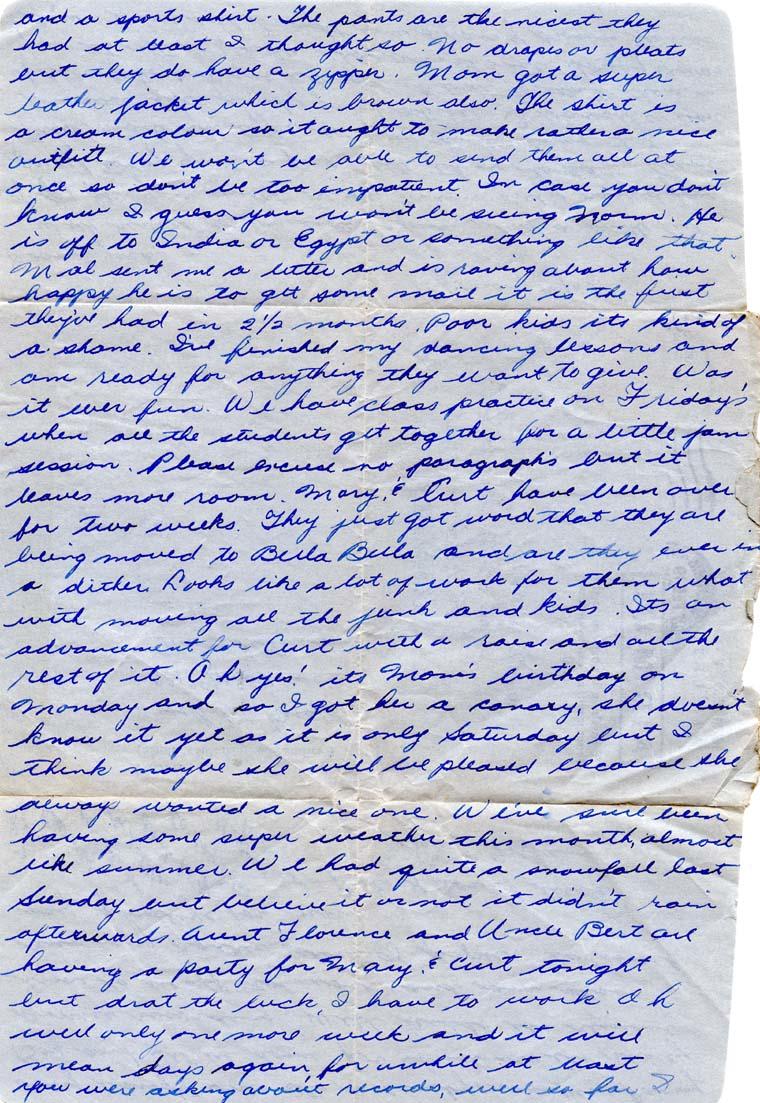 and a sports shirt. The pants are the nicest they
had at least I thought so. No drapes or pleats
but they do have a zipper. Mom got a super
leather jacket which is brown also. The shirt is
a cream colour so it aught to make rather a nice
outfitt. We won't be able to send them all at
once so don't be too impatient. In case you don't
know I guess you won't be seeing Norm. He
is off to India or Egypt or something like that.
Mal sent me a letter and is raving about how
happy he is to get some mail it is the first
they've had in 2 1/2 months. Poor kids its kind of
a shame. I've finished my dancing lessons and
am ready for anything they want to give. Was
it ever fun. We have class practice on Friday's
when all the students get together for a little jam
session. Please excuse no paragraphs but it
leaves more room. Mary & Curt have been over
for two weeks. They just got word that they are
being moved to Bella Bella and are they ever in
a dither. Looks like a lot of work for them what
with moving all the junk and kids. Its an
advancement for Curt with a raise and all the
rest of it. Oh yes! its Mom's birthday on
Monday and so I got her a canary, she doesn't
know it yet as it is only Saturday but I
think maybe she will be pleased because she
always wanted a nice one. We've sure been
having some super weather this month, almost
like summer. We had quite a snowfall last
Sunday but believe it or not it didn't rain
afterwards. Aunt Florence and Uncle Bert are
having a party for Mary & Curt tonight
but drat the luck, I have to work. Oh
well only one more week and it will
mean days again for awhile at least
You were asking about records, well so far I